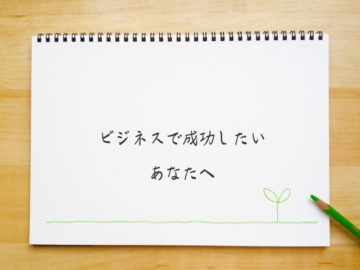 ビジネスで成功したい
あなたへ